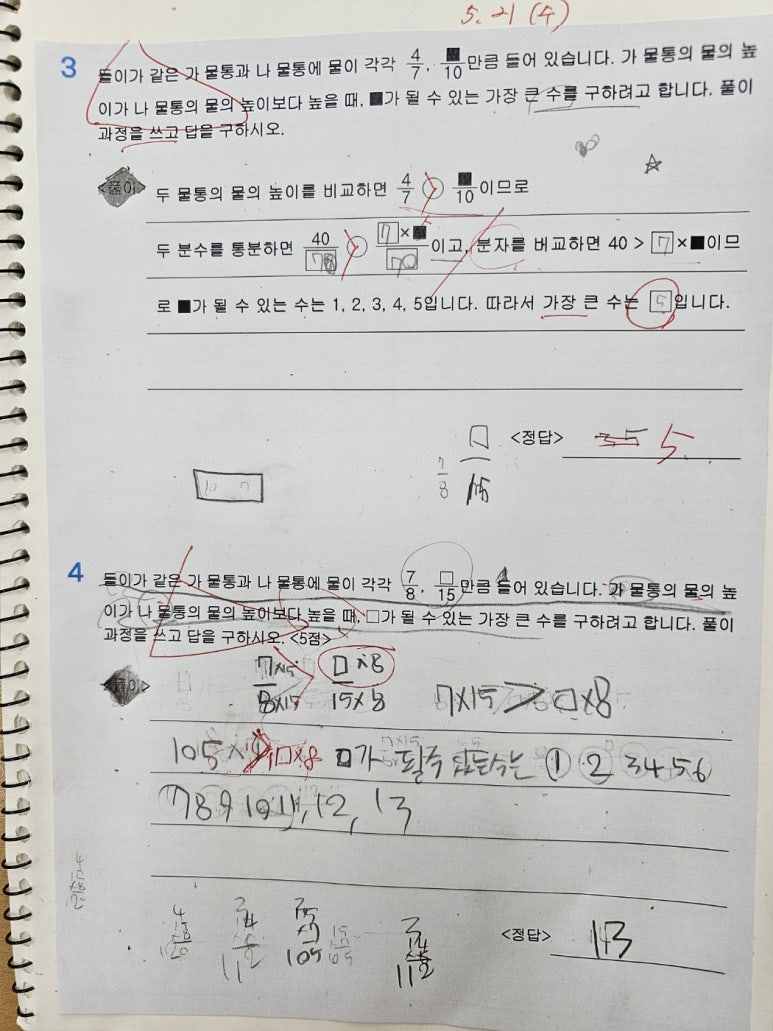 5. 21 (수)
3 들이가 같은 가 물통과 나 물통에 물이 각각 4/7, ■/10만큼 들어 있습니다. 가 물통의 물의 높
이가 나 물통의 물의 높이보다 높을 때, ■가 될 수 있는 가장 큰 수를 구하려고 합니다. 풀이
과정을 쓰고 답을 구하시오.
<풀이> 두 물통의 물의 높이를 비교하면 4/7 > ■/10이므로
두 분수를 통분하면 40/70 > 7×■/70이고, 분자를 비교하면 40 > 7×■이므
로 ■가 될 수 있는 수는 1, 2, 3, 4, 5입니다. 따라서 가장 큰 수는 5입니다.
<정답> 35 5
7/8 □/15
10 7
4 들이가 같은 가 물통과 나 물통에 물이 각각 7/8, □/15만큼 들어 있습니다. 가 물통의 물의 높
이가 나 물통의 물의 높이보다 높을 때, □가 될 수 있는 가장 큰 수를 구하려고 합니다. 풀이
과정을 쓰고 답을 구하시오. <5점>
<풀이> 7×15/8×15 > □×8/15×8 7×15 > □×8
105 > □×8 □가 될수 있는수는 1 2 3 4 5 6
7 8 9 10 11, 12, 13
15 7 105
14 8 112
<정답> 13